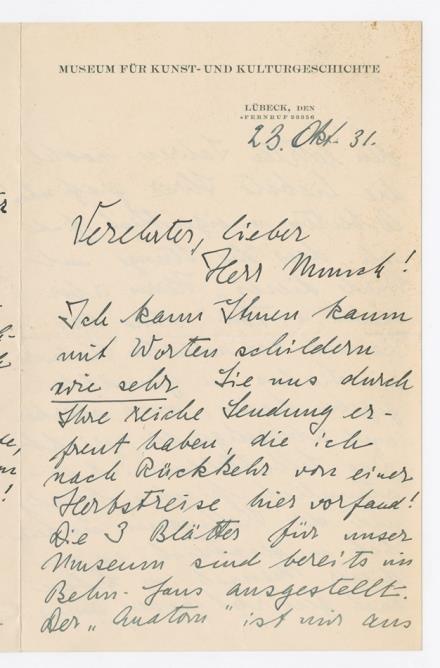 MUSEUM FÜR KUNST- UND KULTURGESCHICHTE
LÜBECK, DEN
FERNRUF
23. Okt. 31.
Verehrter, lieber
Herr Munch!
Ich kann Ihnen kaum
mit Worten schildern
wie sehr Sie uns durch
Ihre reiche Sendung er-
freut haben, die ich
nach Rückkehr von einer
Herbstreise hier vorfand!
Die 3 Blätter für unser
Museum sind bereits im
Behn-Haus ausgestellt.
Der „Anatom" ist mir aus